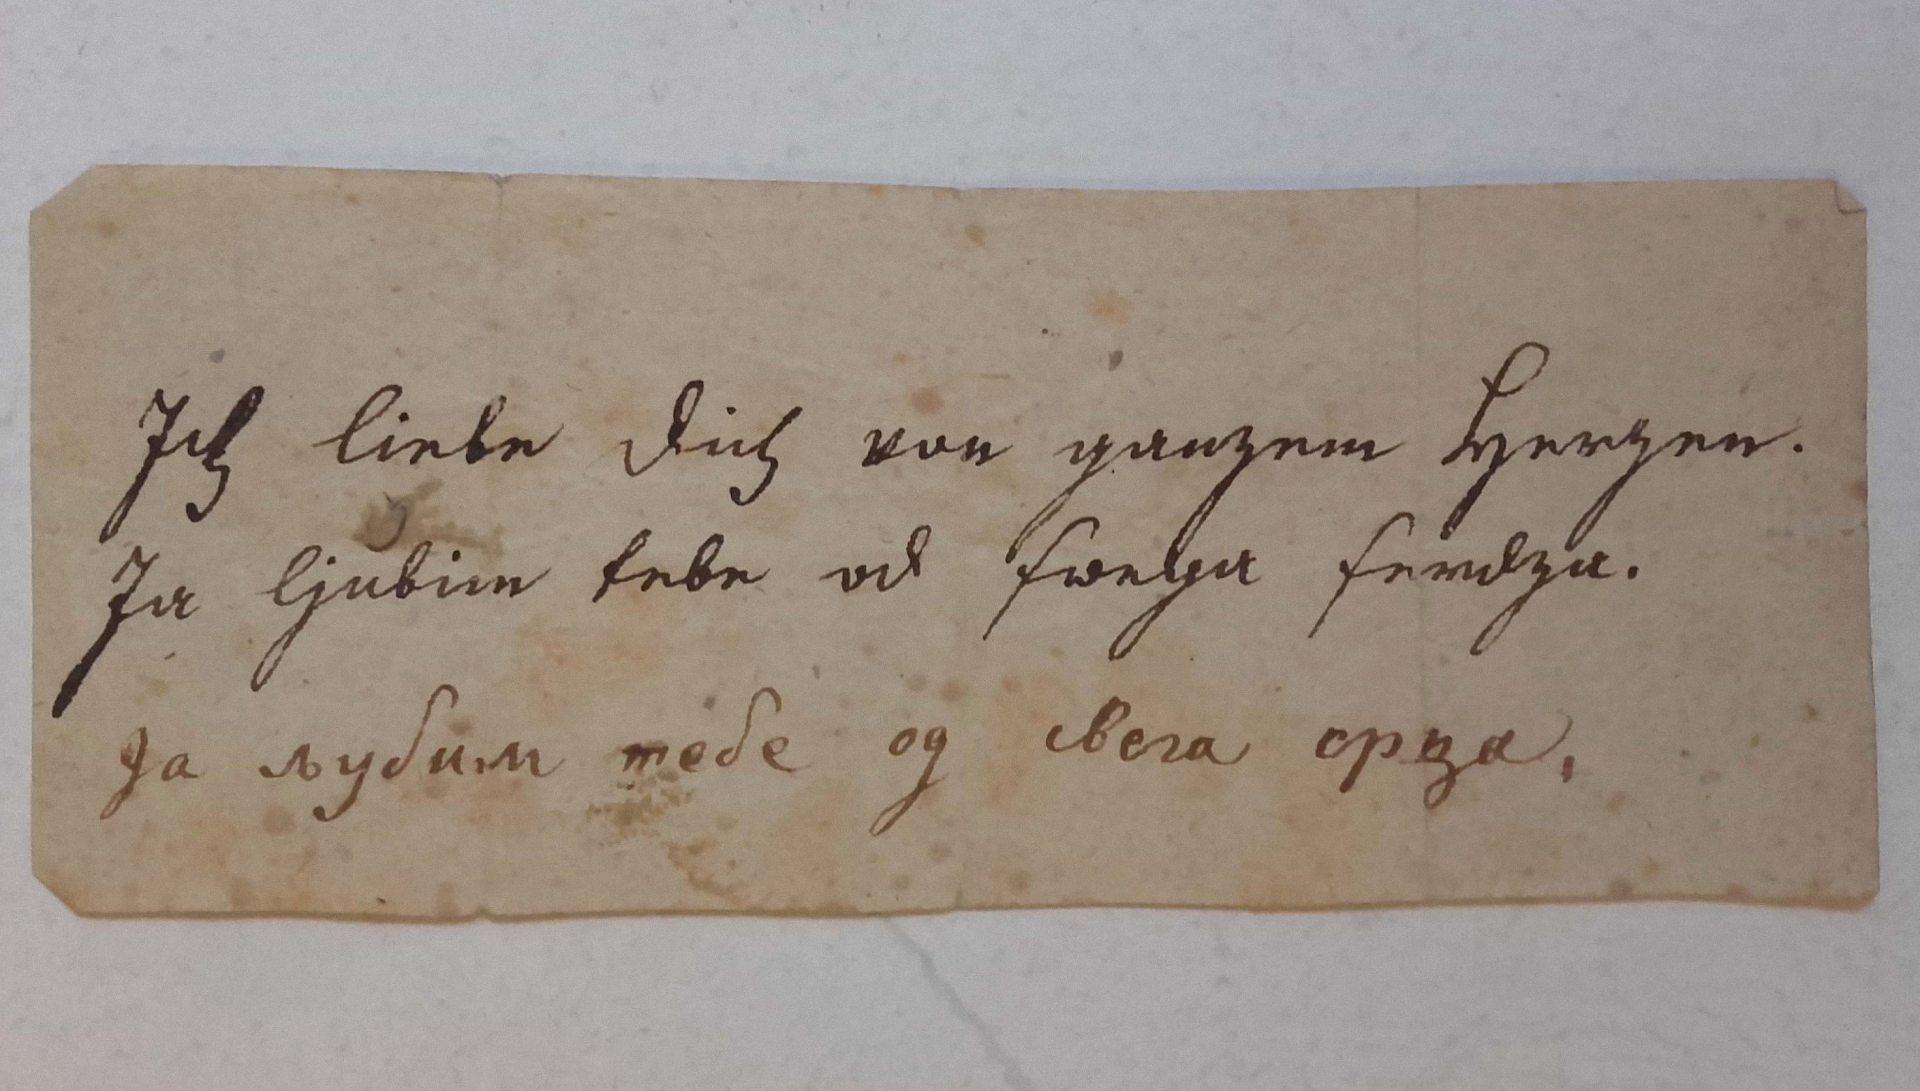 Ich liebe Dich von ganzem Herzen.
Ja ljubim tebe od swega serdza.
Ја љубим тебе од свега срца.